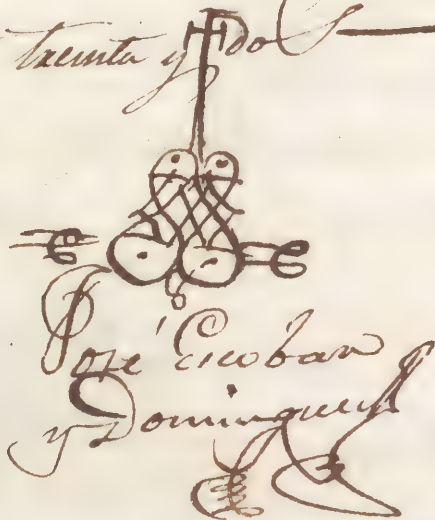 treinta y Dos
José Escobar
y Dominguez